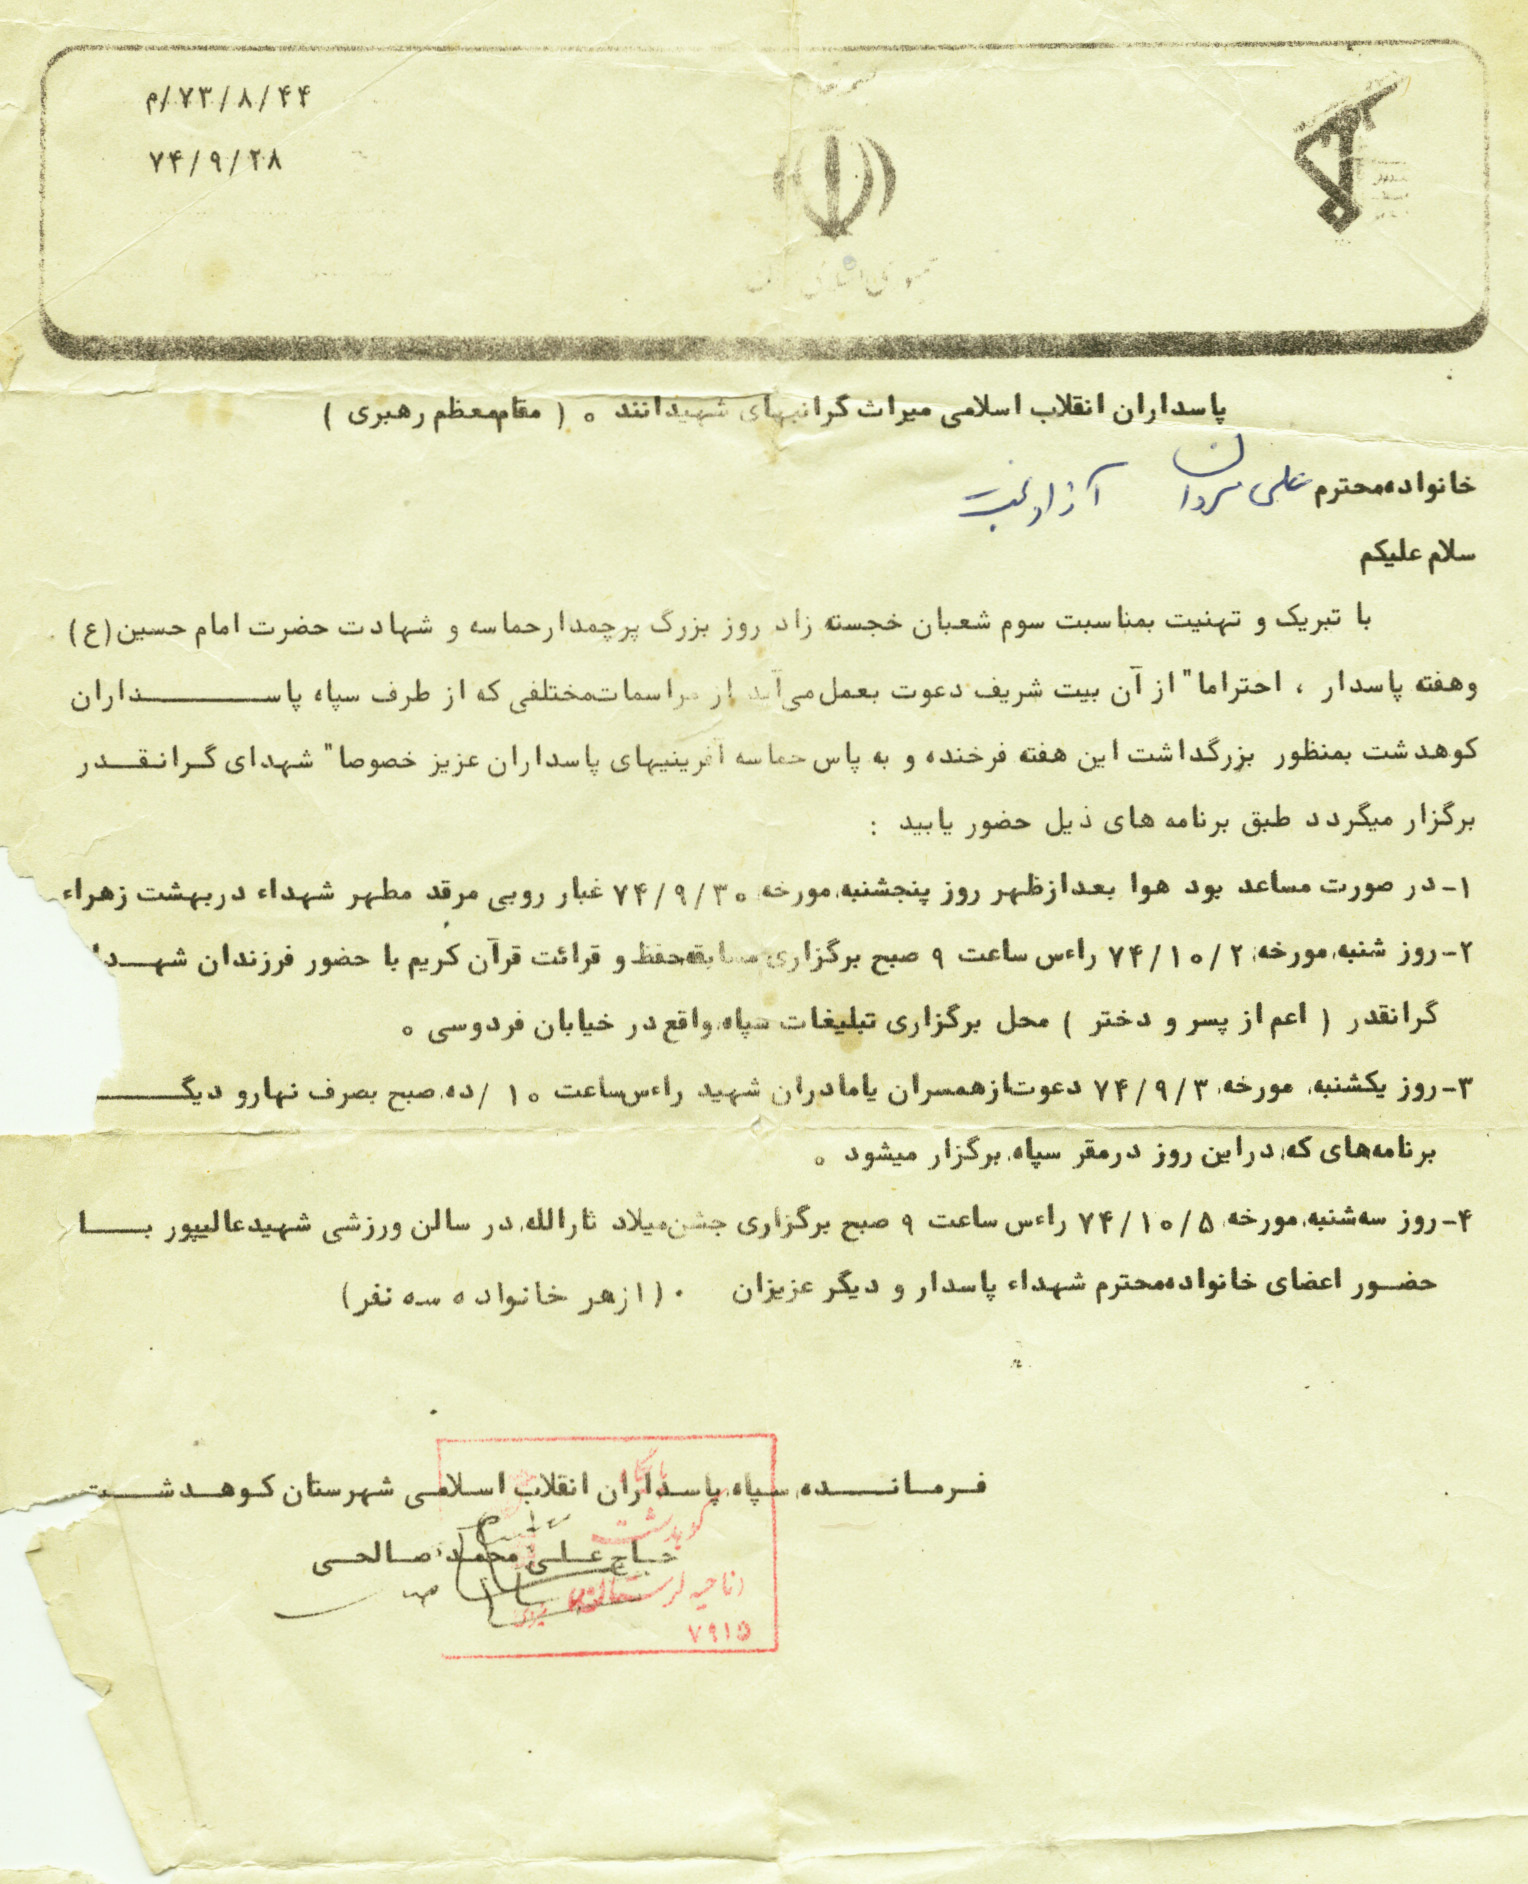 ۷۳/۸/۴۴/م
۷۴/۹/۲۸
پاسداران انقلاب اسلامی میراث گرانبهای شهیدانند ۰ ( مقام معظم رهبری )
خانواده محترم علی مردان آزادبخت
سلام علیکم
با تبریک و تهنیت بمناسبت سوم شعبان خجسته زاد روز بزرگ پرچمدار حماسه و شهادت حضرت امام حسین (ع)
و هفته پاسدار ، احتراما" از آن بیت شریف دعوت بعمل می‌آید از مراسمات مختلفی که از طرف سپاه پاســـــداران
کوهدشت بمنظور بزرگداشت این هفته فرخنده و به پاس حماسه آفرینیهای پاسداران عزیز خصوصا" شهدای گرانقـدر
برگزار میگردد طبق برنامه های ذیل حضور یابید :
۱- در صورت مساعد بود هوا بعدازظهر روز پنجشنبه مورخه ۷۴/۹/۳۰ غبار روبی مرقد مطهر شهداء در بهشت زهراء
۲- روز شنبه مورخه ۷۴/۱۰/۲ راءس ساعت ۹ صبح برگزاری مسابقه حفظ و قرائت قرآن کریم با حضور فرزندان شهـدا
گرانقدر ( اعم از پسر و دختر ) محل برگزاری تبلیغات سپاه واقع در خیابان فردوسی ۰
۳- روز یکشنبه مورخه ۷۴/۹/۳ دعوت از همسران یا مادران شهید راءس ساعت ۱۰ /ده صبح بصرف نهار و دیگـــــ
برنامه‌های که در این روز در مقر سپاه برگزار میشود ۰
۴- روز سه‌شنبه مورخه ۷۴/۱۰/۵ راءس ساعت ۹ صبح برگزاری جشن میلاد ثارالله در سالن ورزشی شهید عالیپور بـــا
حضـور اعضای خانواده محترم شهداء پاسدار و دیگر عزیزان ۰ (از هر خانواده سه نفر)
فـرمـانـــده سپاه پاسداران انقلاب اسلامـی شهرستان کـوهـدشـــت
حـاج عـلـی محمـد صـالحـی
کوهدشت
ناحیه لرستان
۷۹۱۵